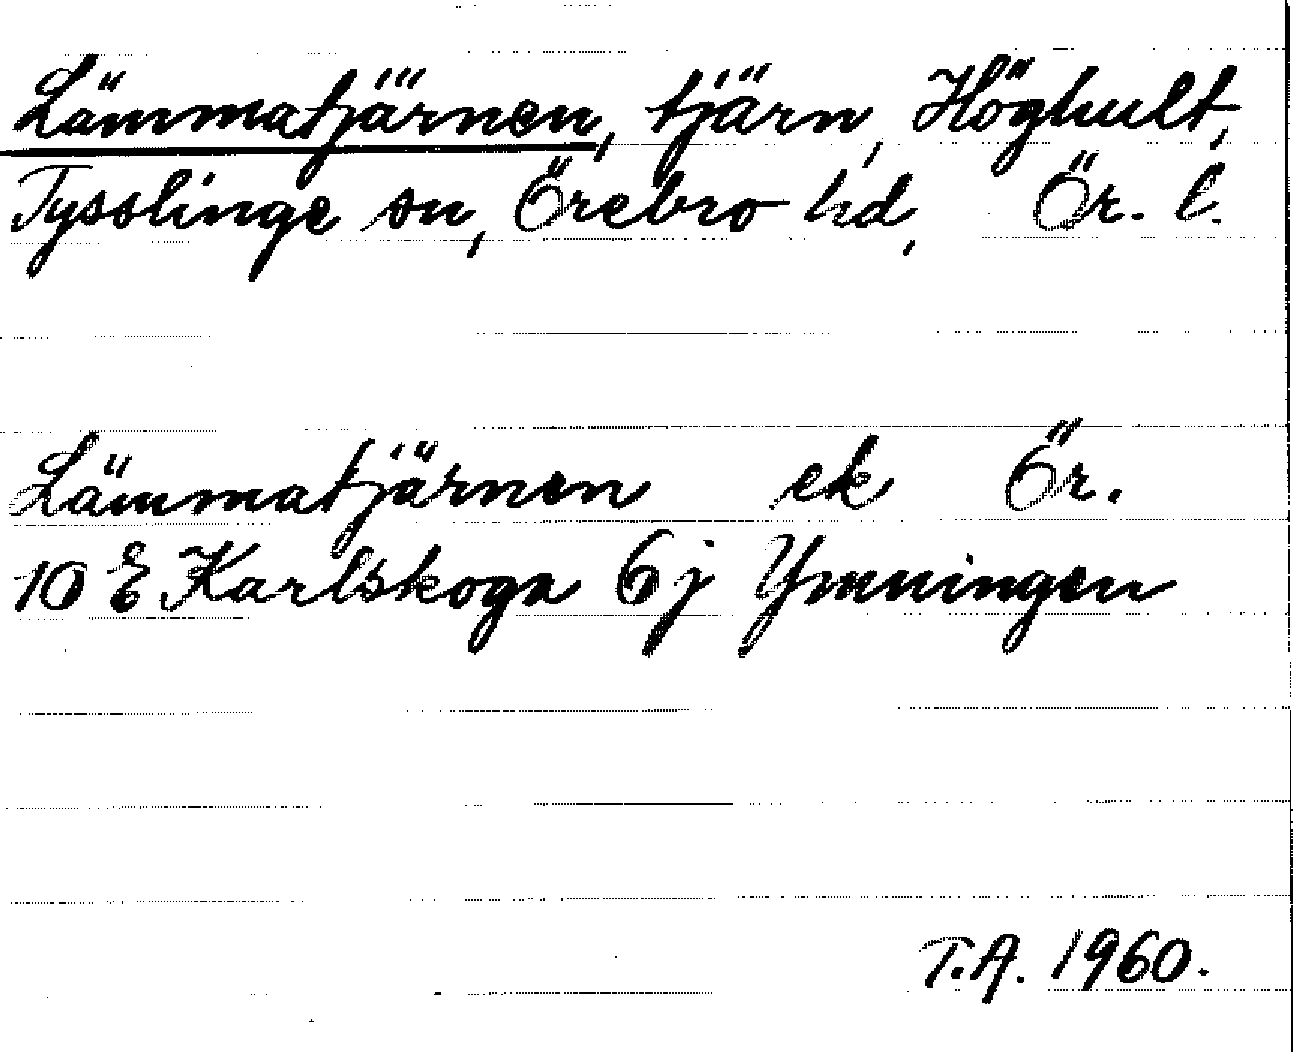 Lämmatjärnen, tjärn, Höghult,
Tysslinge sn, Örebro hd, Ör. l.
Lämmatjärnen ek Ör.
10 E Karlskoga 6j Ymningen
T.A. 1960.